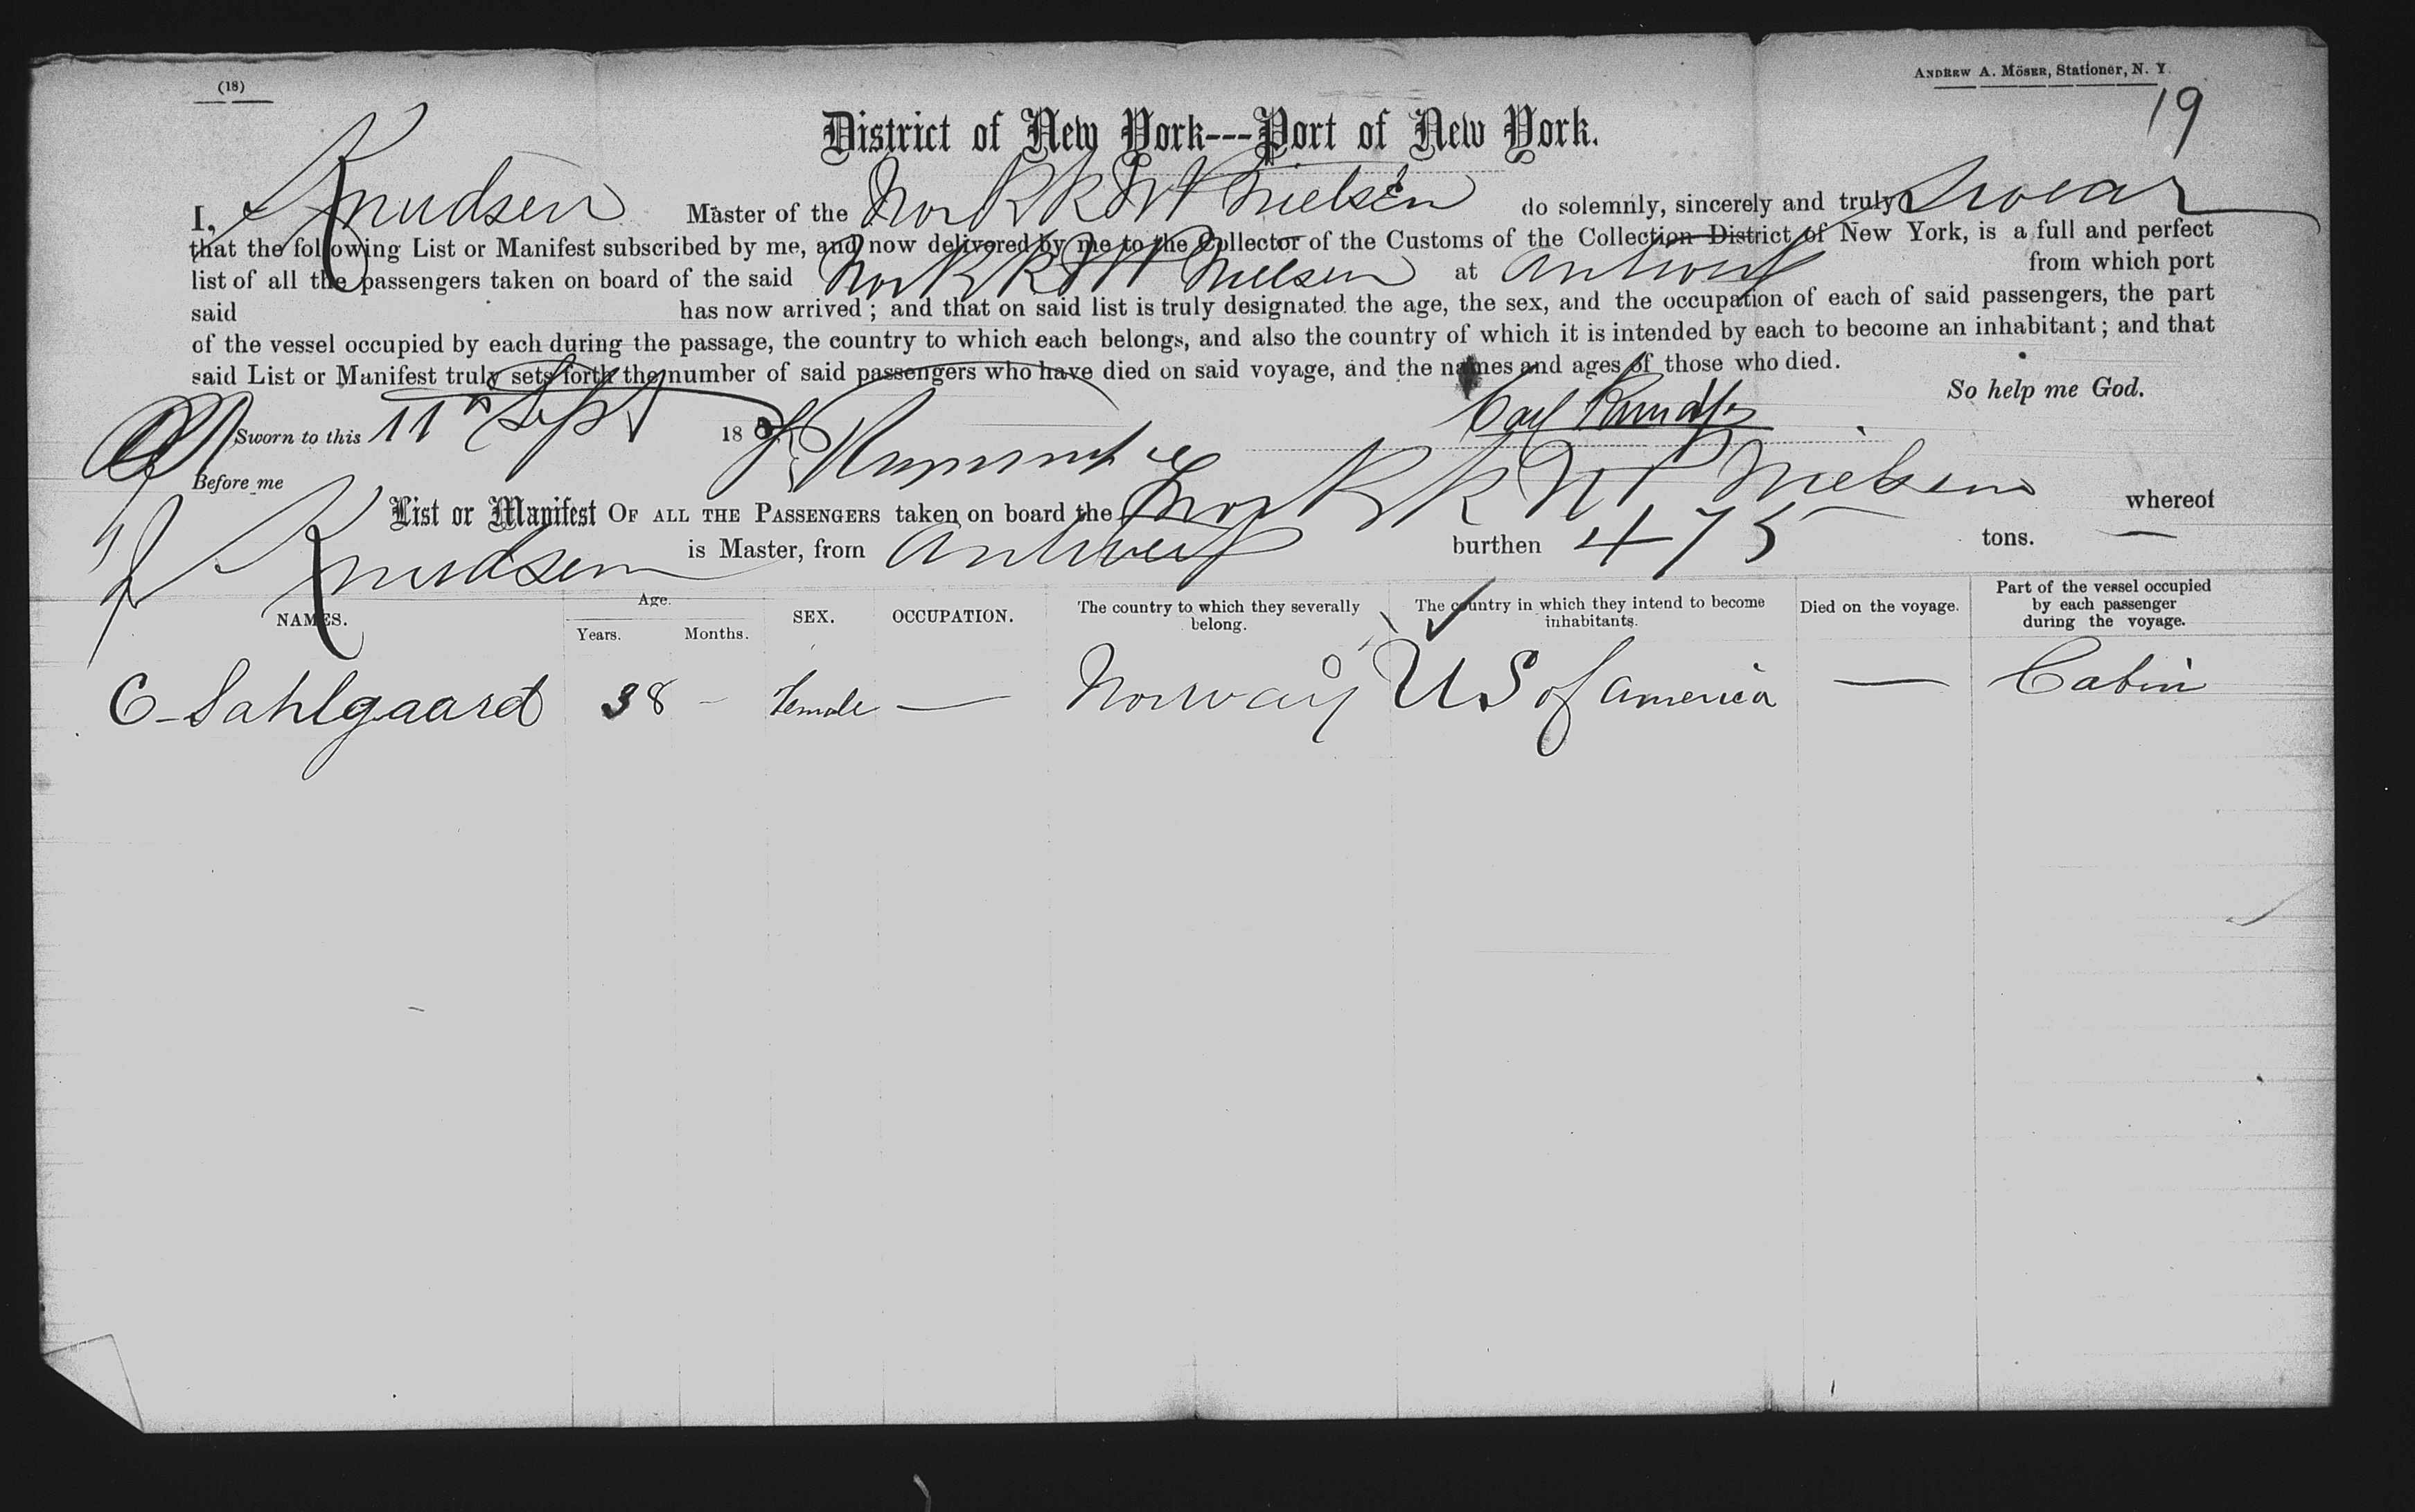 (18)
ANDREW A. MÖSER, Stationer, N. Y.
19
District of New York---Port of New York.
I, Knudsen Master of the Nor Bk R W P Nielsen do solemnly, sincerely and truly Swear
that the following List or Manifest subscribed by me, and now delivered by me to the Collector of the Customs of the Collection District of New York, is a full and perfect
list of all the passengers taken on board of the said Nor Bk R W P Nielsen at Antwerp from which port
said has now arrived ; and that on said list is truly designated the age, the sex, and the occupation of each of said passengers, the part
of the vessel occupied by each during the passage, the country to which each belongs, and also the country of which it is intended by each to become an inhabitant ; and that
said List or Manifest truly sets forth the number of said passengers who have died on said voyage, and the names and ages of those who died.
So help me God.
Sworn to this 11th Sept 18 Carl Knudsen
Before me
List or Manifest OF ALL THE PASSENGERS taken on board the Nor Bk R W P Nielsen whereof
Knudsen is Master, from Antwerp burthen 475 tons. —
NAMES. Age. Years. Months. SEX. OCCUPATION. The country to which they severally belong. The country in which they intend to become inhabitants. Died on the voyage. Part of the vessel occupied by each passenger during the voyage.
C - Sahlgaard 38 - Female — Norway U S of America — Cabin